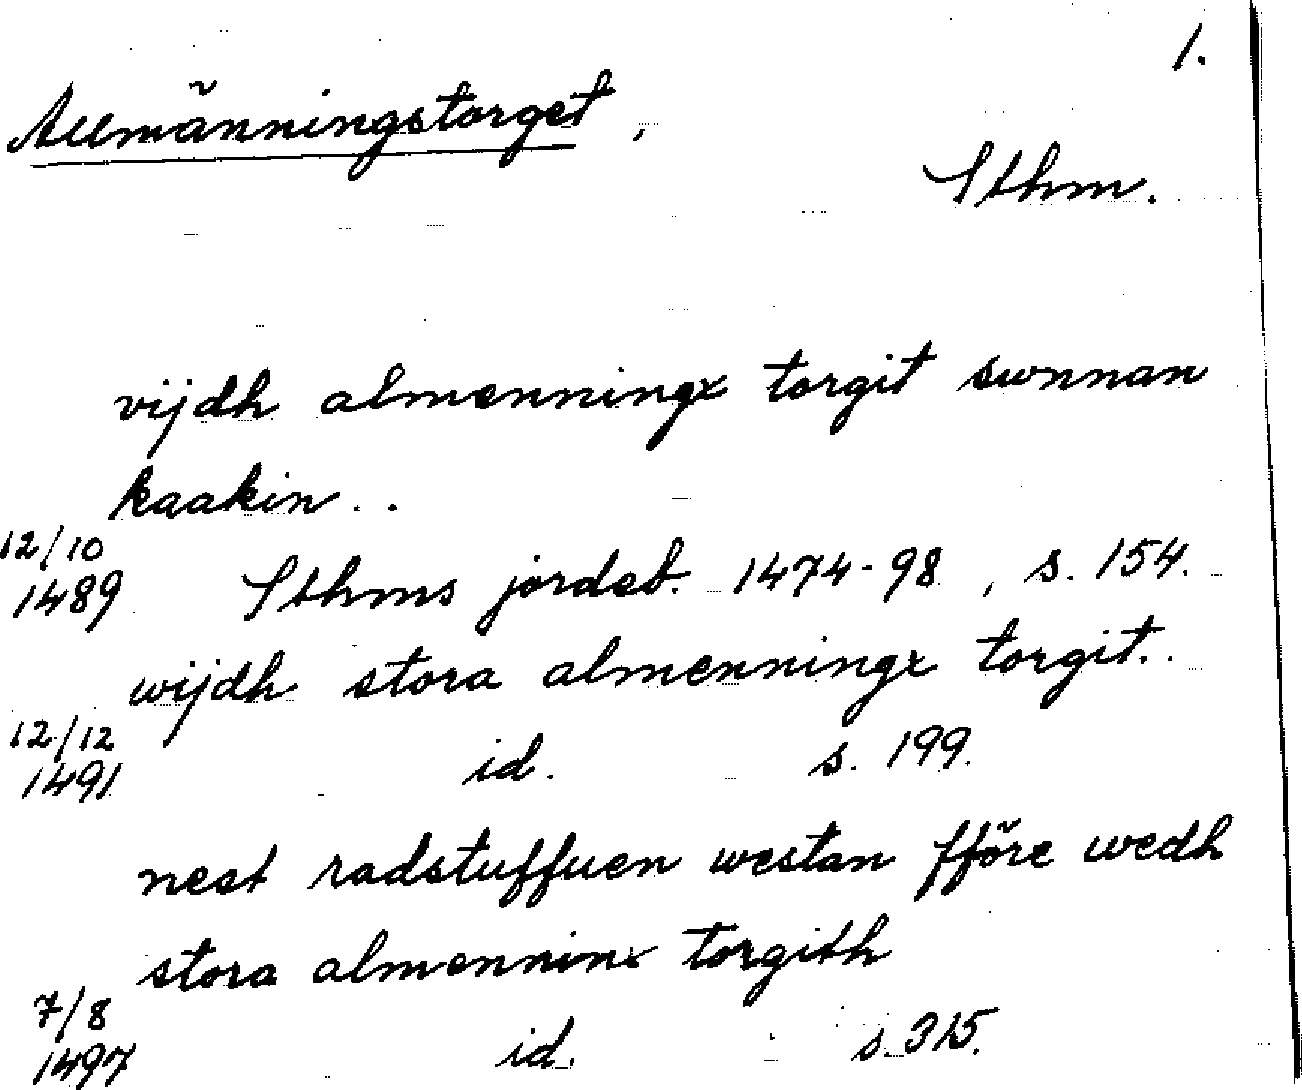 1.
Allmänningstorget,
Sthm.
vijdh almenningx torgit swnnan
kaakin..
12/10
1489 Sthms jordeb. 1474-98, s. 154.
wijdh stora almenningx torgit..
12/12
1491 id. s. 199.
nest radstuffuen westan fföre wedh
stora almenninx torgith
7/8
1497 id. s. 315.